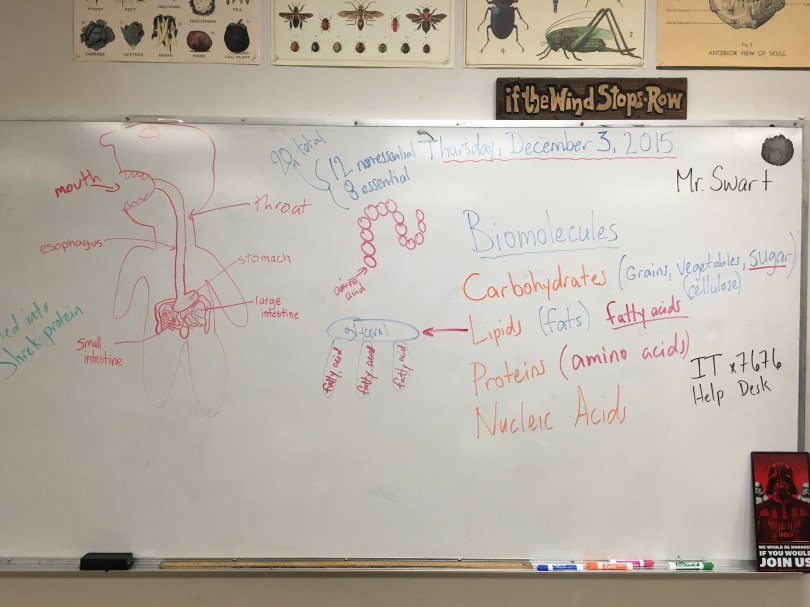 CABBAGE LETTUCE BEANS
Fig. 2
ANTERIOR VIEW OF SKULL
if the Wind Stops-Row
Thursday, December 3, 2015
Mr. Swart
20 total
12 nonessential
8 essential
mouth
throat
esophagus
stomach
large
intestine
small
intestine
ied into
Shrek protein
amino
acid
glycerol
fatty acid
fatty acid
fatty acid
Biomolecules
Carbohydrates (Grains, vegetables, sugar)
(cellulose)
Lipids (fats) fatty acids
Proteins (amino acids)
Nucleic Acids
IT x7676
Help Desk
WE WOULD BE HONORED
IF YOU WOULD
JOIN US